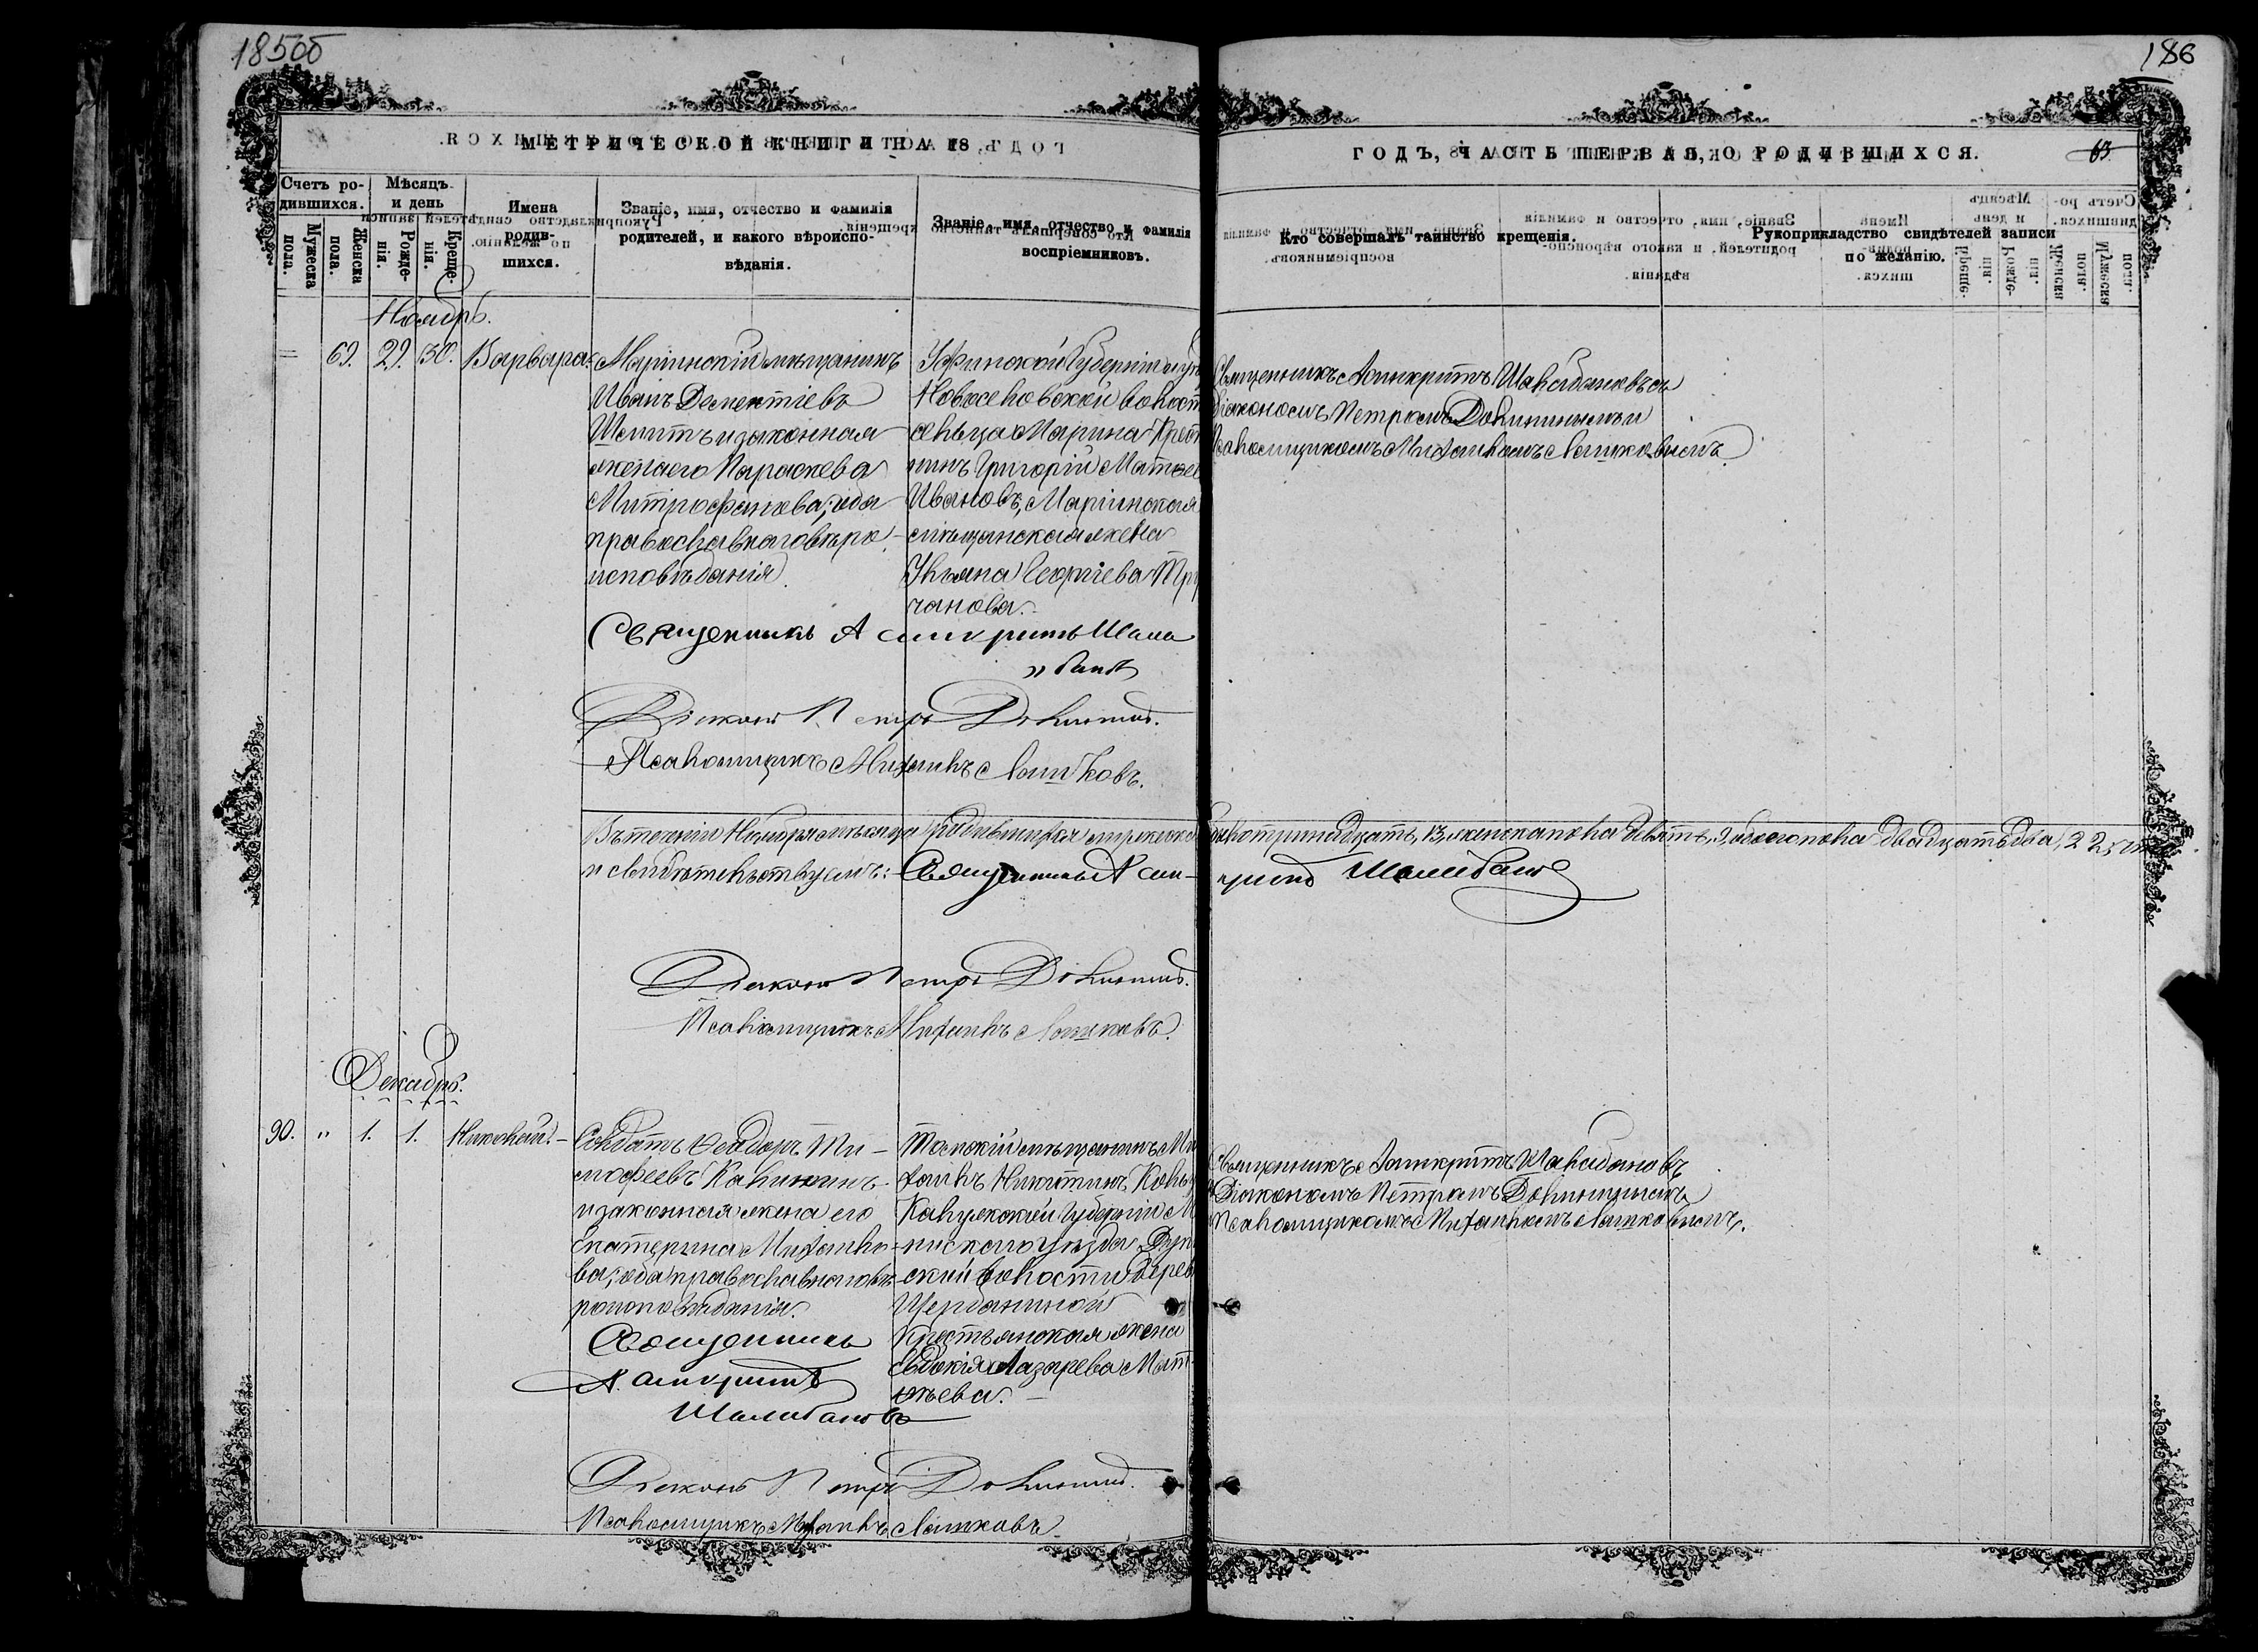 185об
186
МЕТРИЧЕСКОЙ КНИГИ НА 18
ГОДЪ, ЧАСТЬ ПЕРВАЯ, О РОДИВШИХСЯ.
63
Счетъ ро-
дившихся.
Мужеска
пола.
Женска
пола.
Мѣсяцъ
и день
Рожде-
нія.
Креще-
нія.
Имена
родив-
шихся.
Званіе, имя, отчество и фамилія
родителей, и какого вѣроиспо-
вѣданія.
Званіе, имя, отчество и фамилія
воспріемниковъ.
Кто совершалъ таинство крещенія.
Рукоприкладство свидѣтелей записи
по желанію.
Ноябрь.
69. 29. 30. Варвара.
Маріинскій мѣщанинъ
Иванъ Дементіевъ
и законная
жена его Параскева
Митрофанова; оба
православнаго вѣро-
исповѣданія.
Уфимской Губерніи
Новосе
Марина Крест
нинъ Григорій Матвее
Ивановъ, Маріинская
мѣщанская жена
Ульяна Георгіева
чанова.
Священникъ Асинкритъ Шалабановъ съ
Діакономъ Петромъ Докинымъ и
Псаломщикомъ Михаиломъ Лашковымъ.
Священникъ Асинкритъ Шала
бановъ
Діаконъ Петръ Докинъ.
Псаломщикъ Михаилъ Лашковъ.
Въ теченіи Ноября мѣсяца родившихся мужеска пола тринадцать, 13, женска пола девять, 9, обоего пола двадцать два, 22,
и свидѣтельствуемъ: Священникъ Асин-критъ Шалабановъ
Діаконъ Петръ Докинъ.
Псаломщикъ Михаилъ Лашковъ.
Декабрь.
90. " 1. 1. Николай.
Солдатъ Феодоръ Ти-
мофеевъ Калининъ
и законная жена его
Екатерина Михаило-
ва; оба православнаго вѣ-
роисповѣданія.
Томскій мѣщанинъ Ми
хаилъ Никитинъ
Калужской Губерніи М
скаго уѣзда
ской волости дерев
Щербининой
Крестьянская жена
Евдокія Лазарева Мат-
вѣева.
Священникъ Асинкритъ Шалабановъ
Діакономъ Петромъ Докинымъ
Псаломщикомъ Михаиломъ Лашковымъ.
Священникъ
Асинкритъ
Шалабановъ
Діаконъ Петръ Докинъ.
Псаломщикъ Михаилъ Лашковъ.